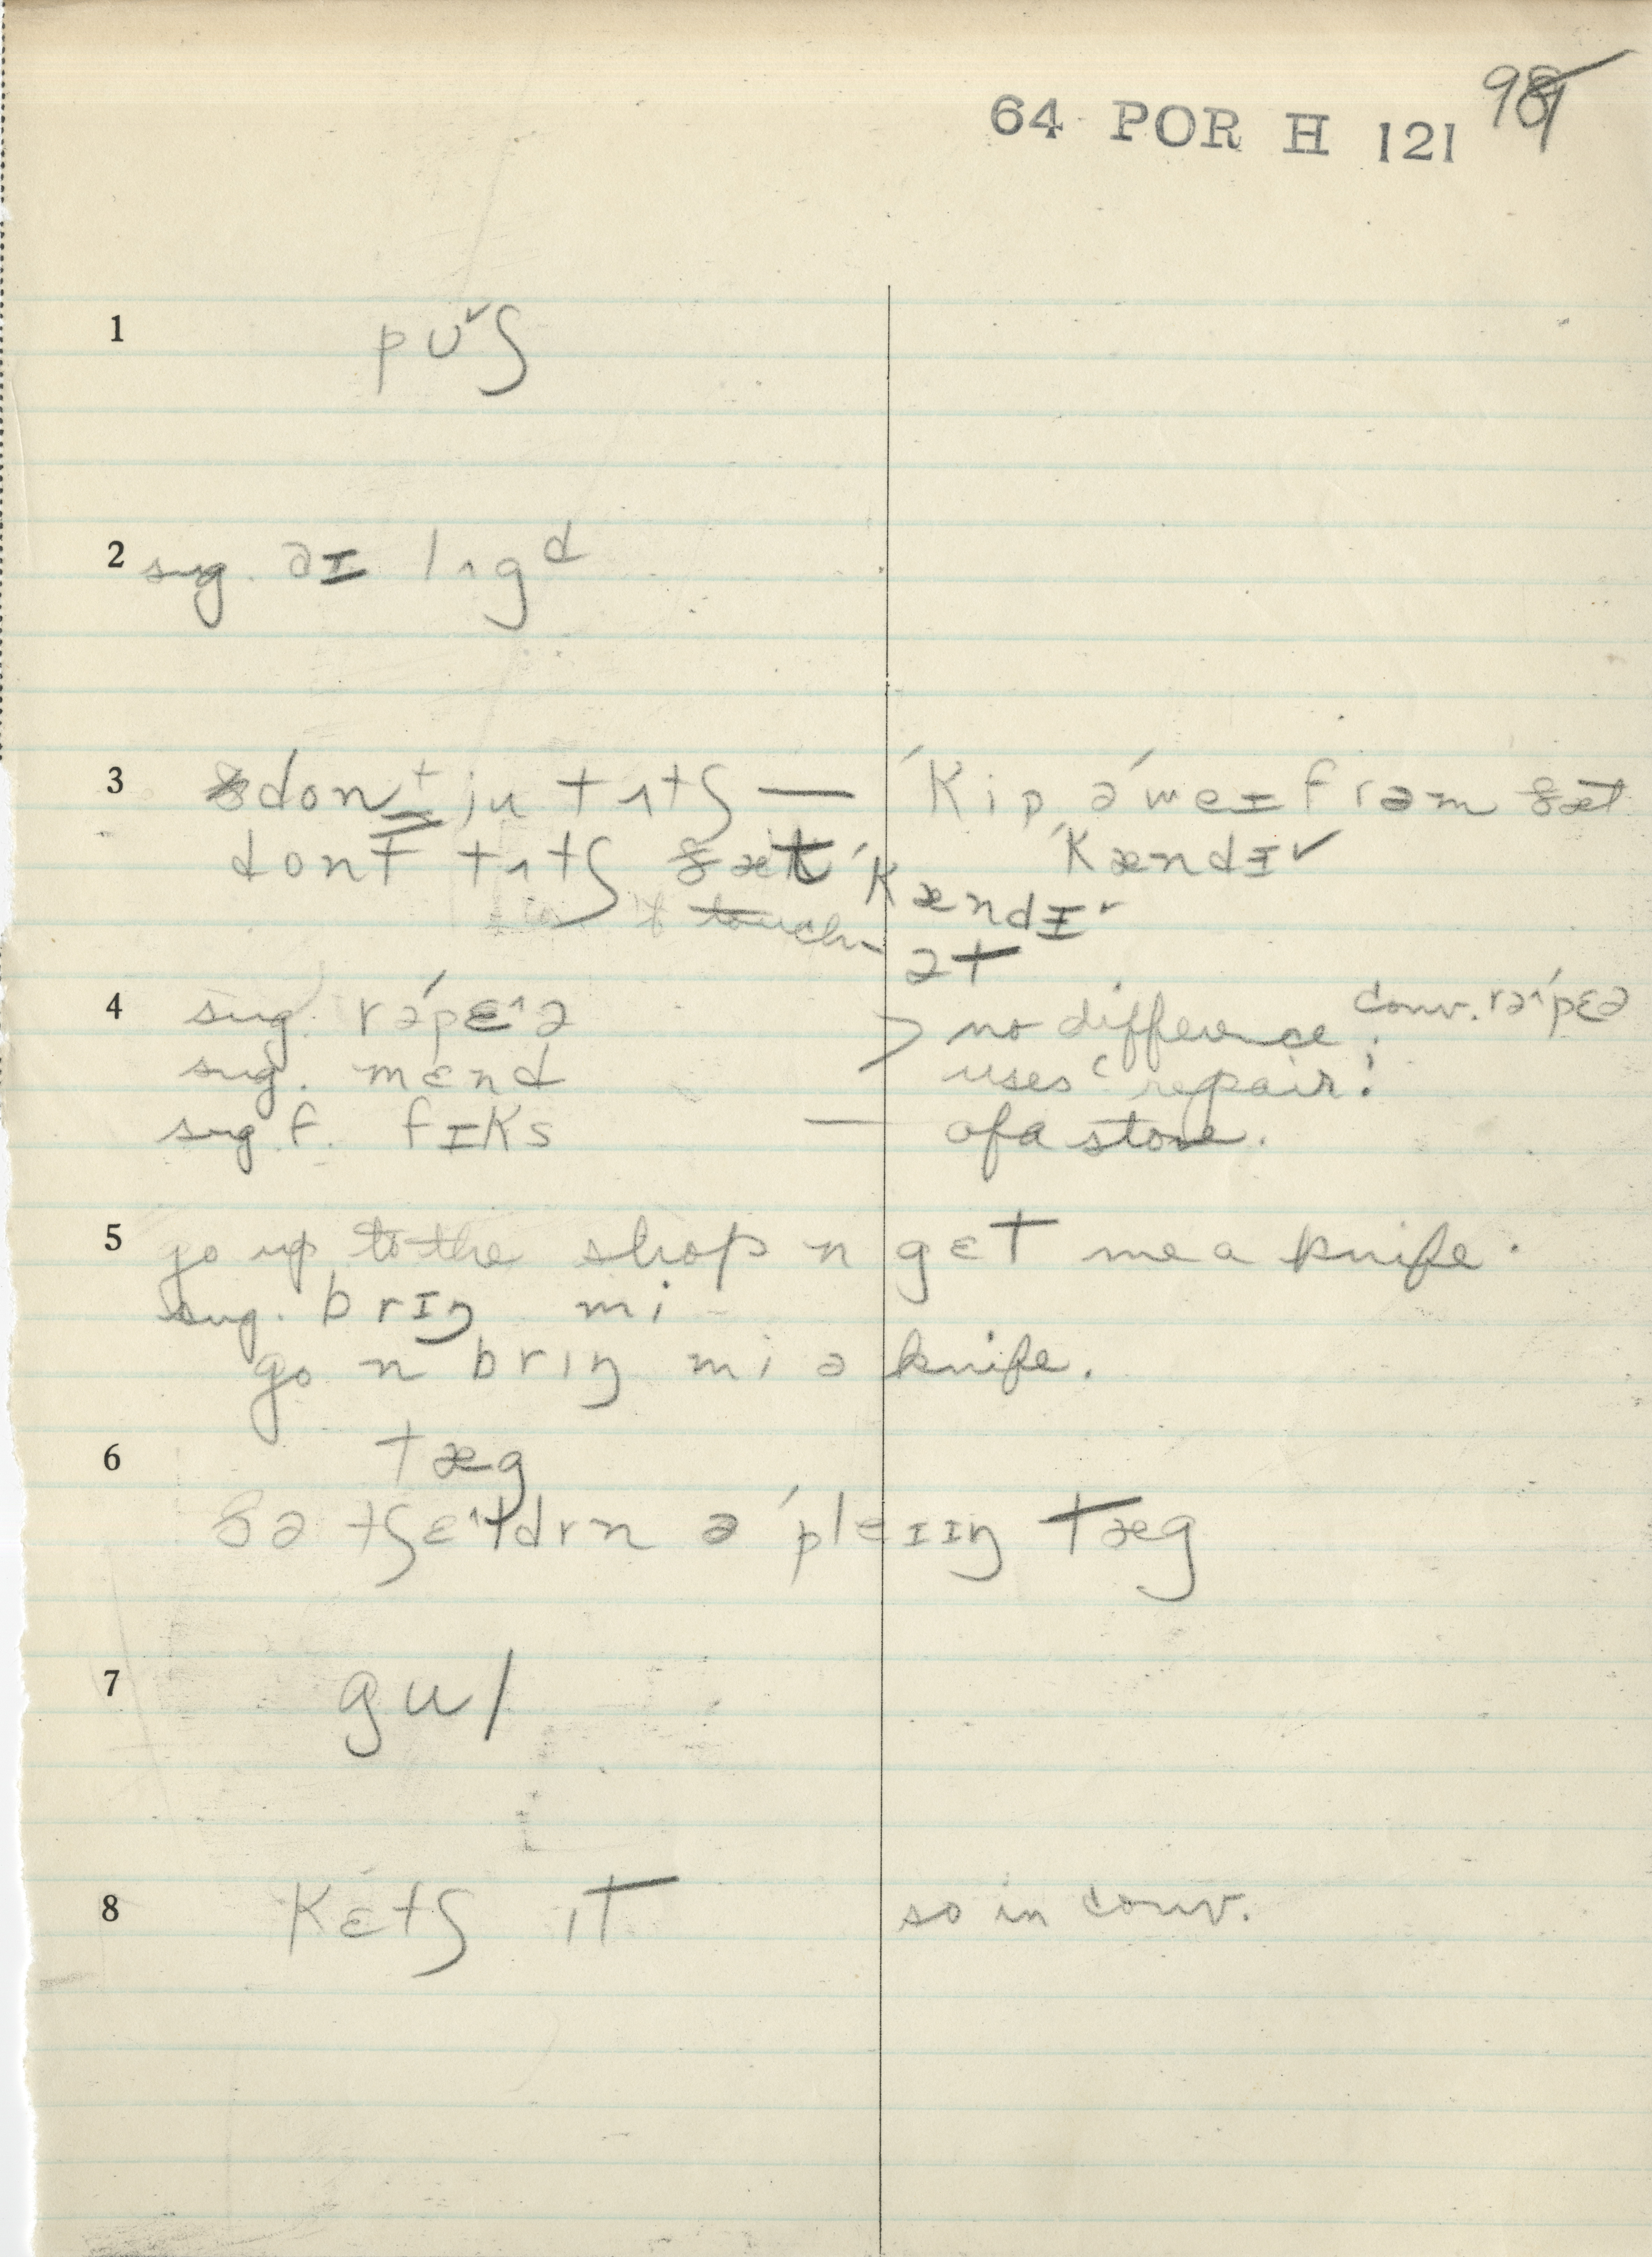 64 POR H 121
98
1 pʊ˅ʃ
2 sug. aɪ lʌgd
3 dont ju tʌtʃ — ˈkip əˈweɪ frəm ðæt ˈkændɪ˅
dont tʌtʃ ðæt ˈkændɪ˅
touch
ət
4 sug. rəˈpɛ^ə > no difference; conv. rəˈpɛə
sug. mɛnd uses ‘repair’:
sug f. fɪks — of a stove.
5 go up to the shop n gɛt me a knife.
sug. brɪŋ mi
go n brɪŋ mi ə knife.
6 tæg
ðə tʃɛ^ldrn ə ˈpleɪɪŋ tæg
7 gul
8 kɛtʃ ɪt so in conv.